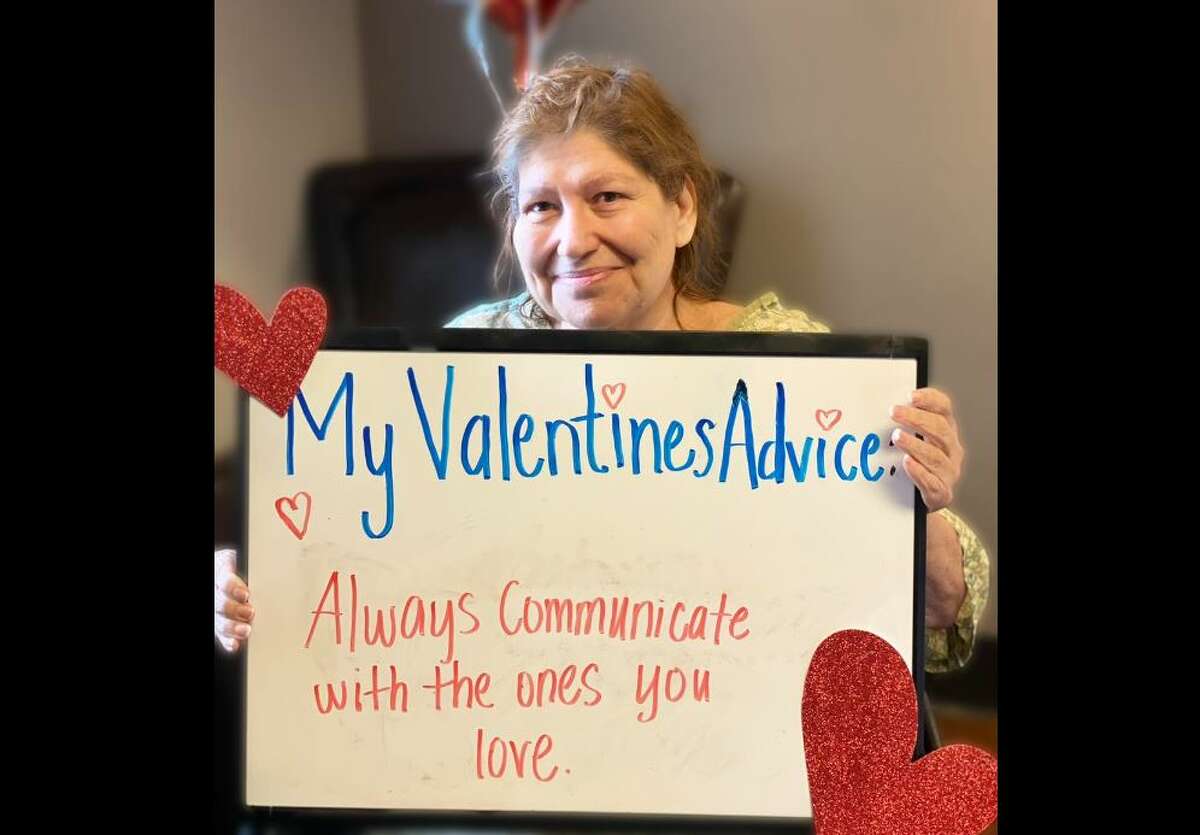 My Valentines Advice:
Always Communicate
with the ones you
love.